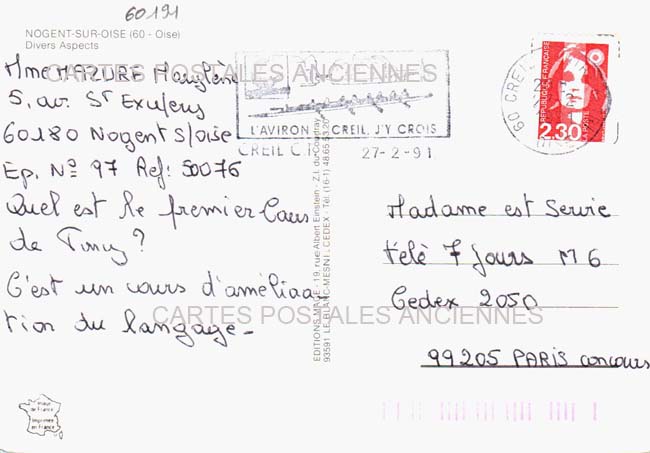 60191
NOGENT-SUR-OISE (60 - Oise)
Divers Aspects
Mme MAZURE
5, av. St Exupery
60180 Nogent S/oise
Ep. Nº 97 Ref: 50076
Quel est le premier Cours
de Fran ?
C'est un cours d'amélioa
tion du langage -
EDITIONS MAGE - 19, rue Albert Einstein - Z.I. du Coudray
93591 LE BLANC-MESNIL CEDEX - Tél. (16-1) 48.65.53.20
L'AVIRON CREIL, J'Y CROIS
CREIL C T
27-2-91
60 CREIL
REPUBLIQUE FRANÇAISE
2,30
Madame est Servie
télè 7 Jours M6
Cedex 2050
99205 PARIS concours
CARTES POSTALES ANCIENNES
CARTES POSTALES ANCIENNES
Imprimé
en France